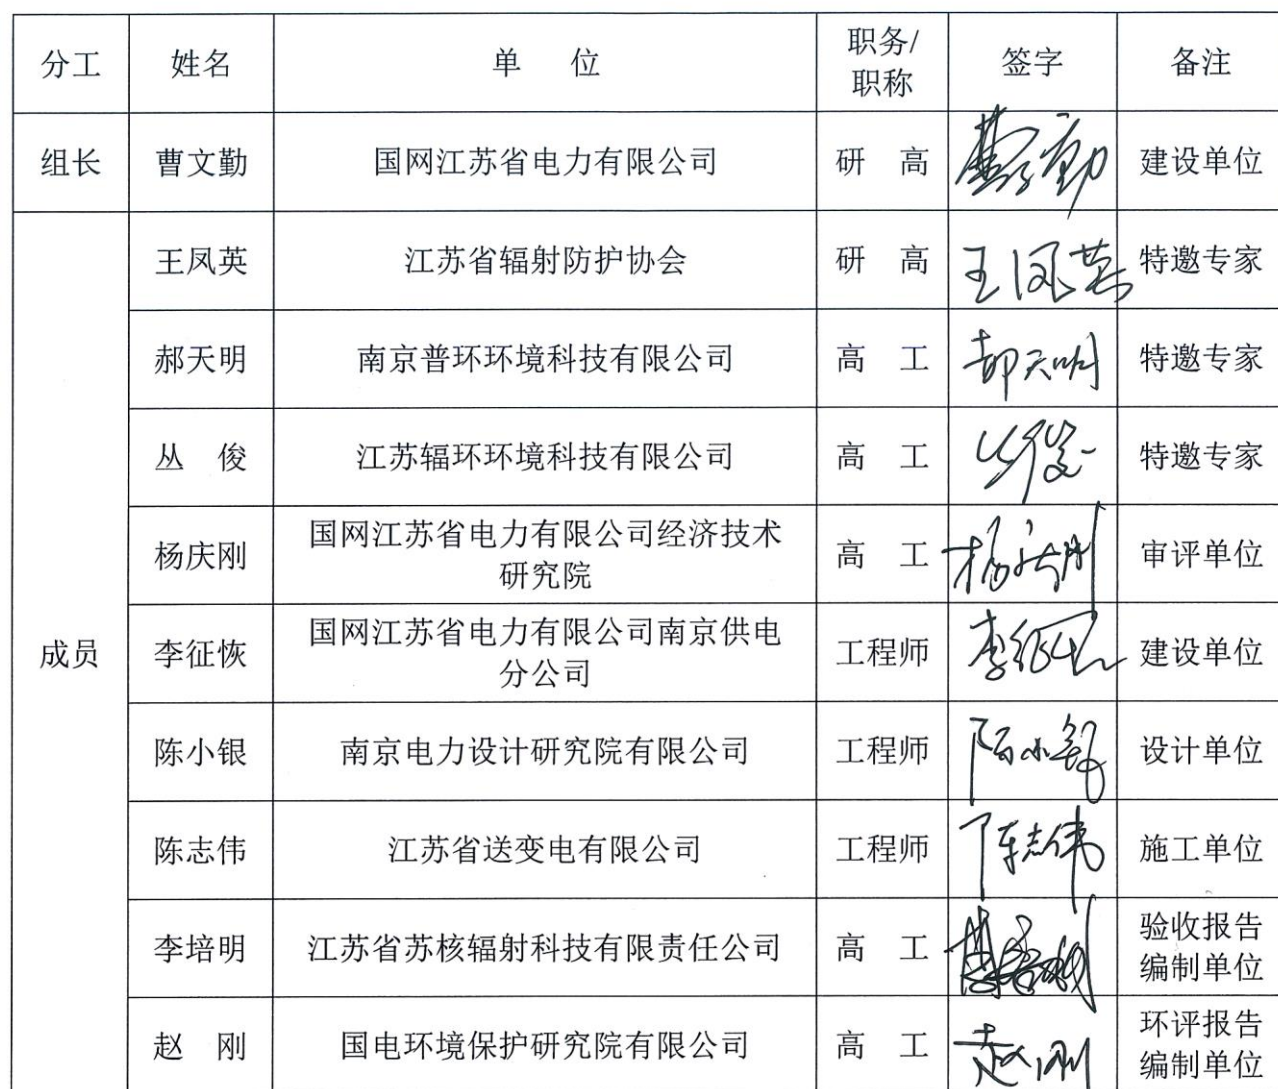 分工 姓名 单 位 职务/ 签字 备注
职称
组长 曹文勤 国网江苏省电力有限公司 研 高 曹文勤 建设单位
王凤英 江苏省辐射防护协会 研 高 王凤英 特邀专家
郝天明 南京普环环境科技有限公司 高 工 郝天明 特邀专家
丛 俊 江苏辐环环境科技有限公司 高 工 丛俊 特邀专家
杨庆刚 国网江苏省电力有限公司经济技术 高 工 杨庆刚 审评单位
研究院
成员 李征恢 国网江苏省电力有限公司南京供电 工程师 建设单位
分公司
陈小银 南京电力设计研究院有限公司 工程师 陈小银 设计单位
陈志伟 江苏省送变电有限公司 工程师 陈志伟 施工单位
李培明 江苏省苏核辐射科技有限责任公司 高 工 验收报告
编制单位
赵 刚 国电环境保护研究院有限公司 高 工 赵刚 环评报告
编制单位